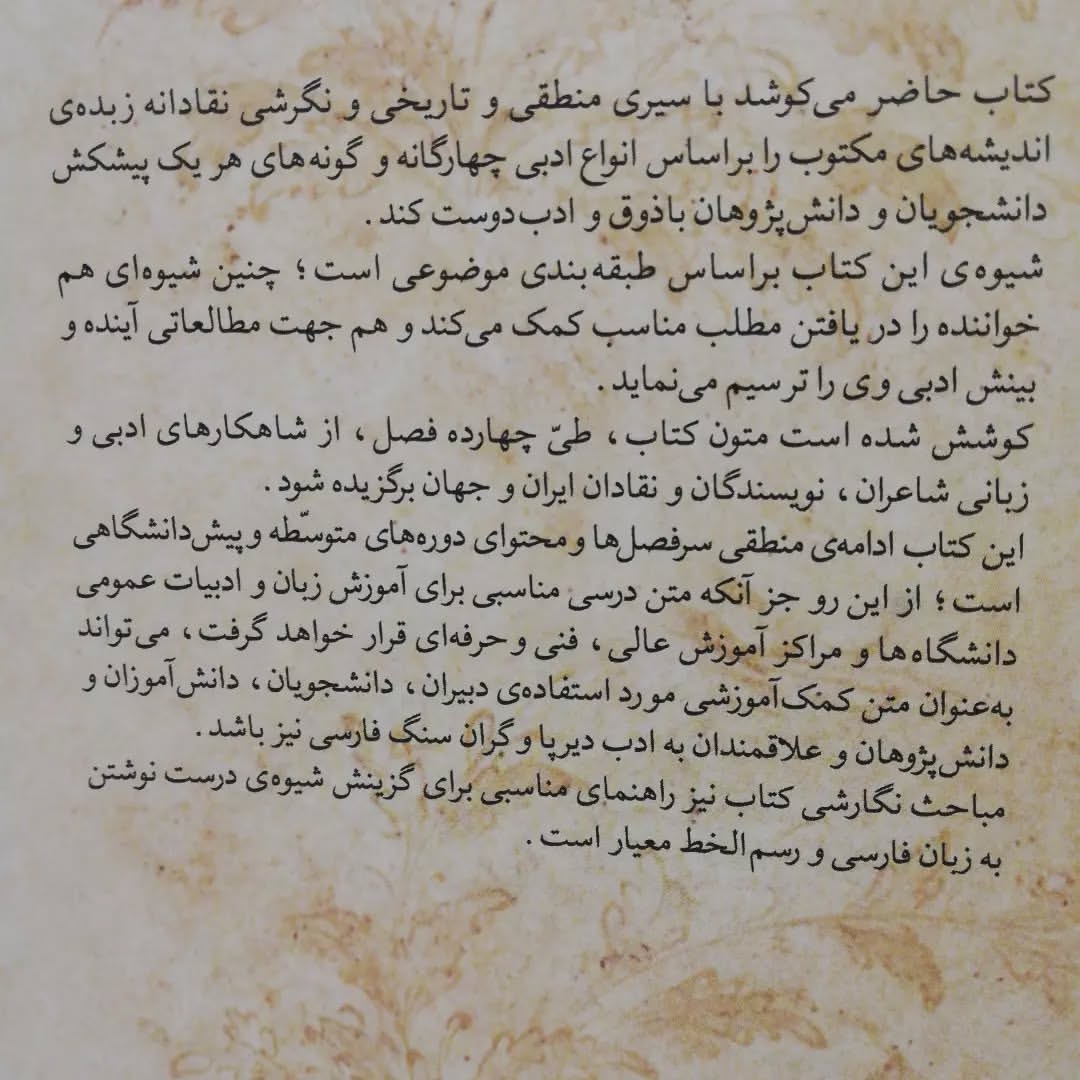 کتاب حاضر می‌کوشد با سیری منطقی و تاریخی و نگرشی نقادانه زبده‌ی
اندیشه‌های مکتوب را براساس انواع ادبی چهارگانه و گونه‌های هر یک پیشکش
دانشجویان و دانش‌پژوهان باذوق و ادب‌دوست کند.
شیوه‌ی این کتاب براساس طبقه‌بندی موضوعی است؛ چنین شیوه‌ای هم
خواننده را در یافتن مطلب مناسب کمک می‌کند و هم جهت مطالعاتی آینده و
بینش ادبی وی را ترسیم می‌نماید.
کوشش شده است متون کتاب، طیّ چهارده فصل، از شاهکارهای ادبی و
زبانی شاعران، نویسندگان و نقادان ایران و جهان برگزیده شود.
این کتاب ادامه‌ی منطقی سرفصل‌ها و محتوای دوره‌های متوسّطه و پیش‌دانشگاهی
است؛ از این رو جز آنکه متن درسی مناسبی برای آموزش زبان و ادبیات عمومی
دانشگاه‌ها و مراکز آموزش عالی، فنی و حرفه‌ای قرار خواهد گرفت، می‌تواند
به‌عنوان متن کمک‌آموزشی مورد استفاده‌ی دبیران، دانشجویان، دانش‌آموزان و
دانش‌پژوهان و علاقمندان به ادب دیرپا و گران سنگ فارسی نیز باشد.
مباحث نگارشی کتاب نیز راهنمای مناسبی برای گزینش شیوه‌ی درست نوشتن
به زبان فارسی و رسم‌الخط معیار است.